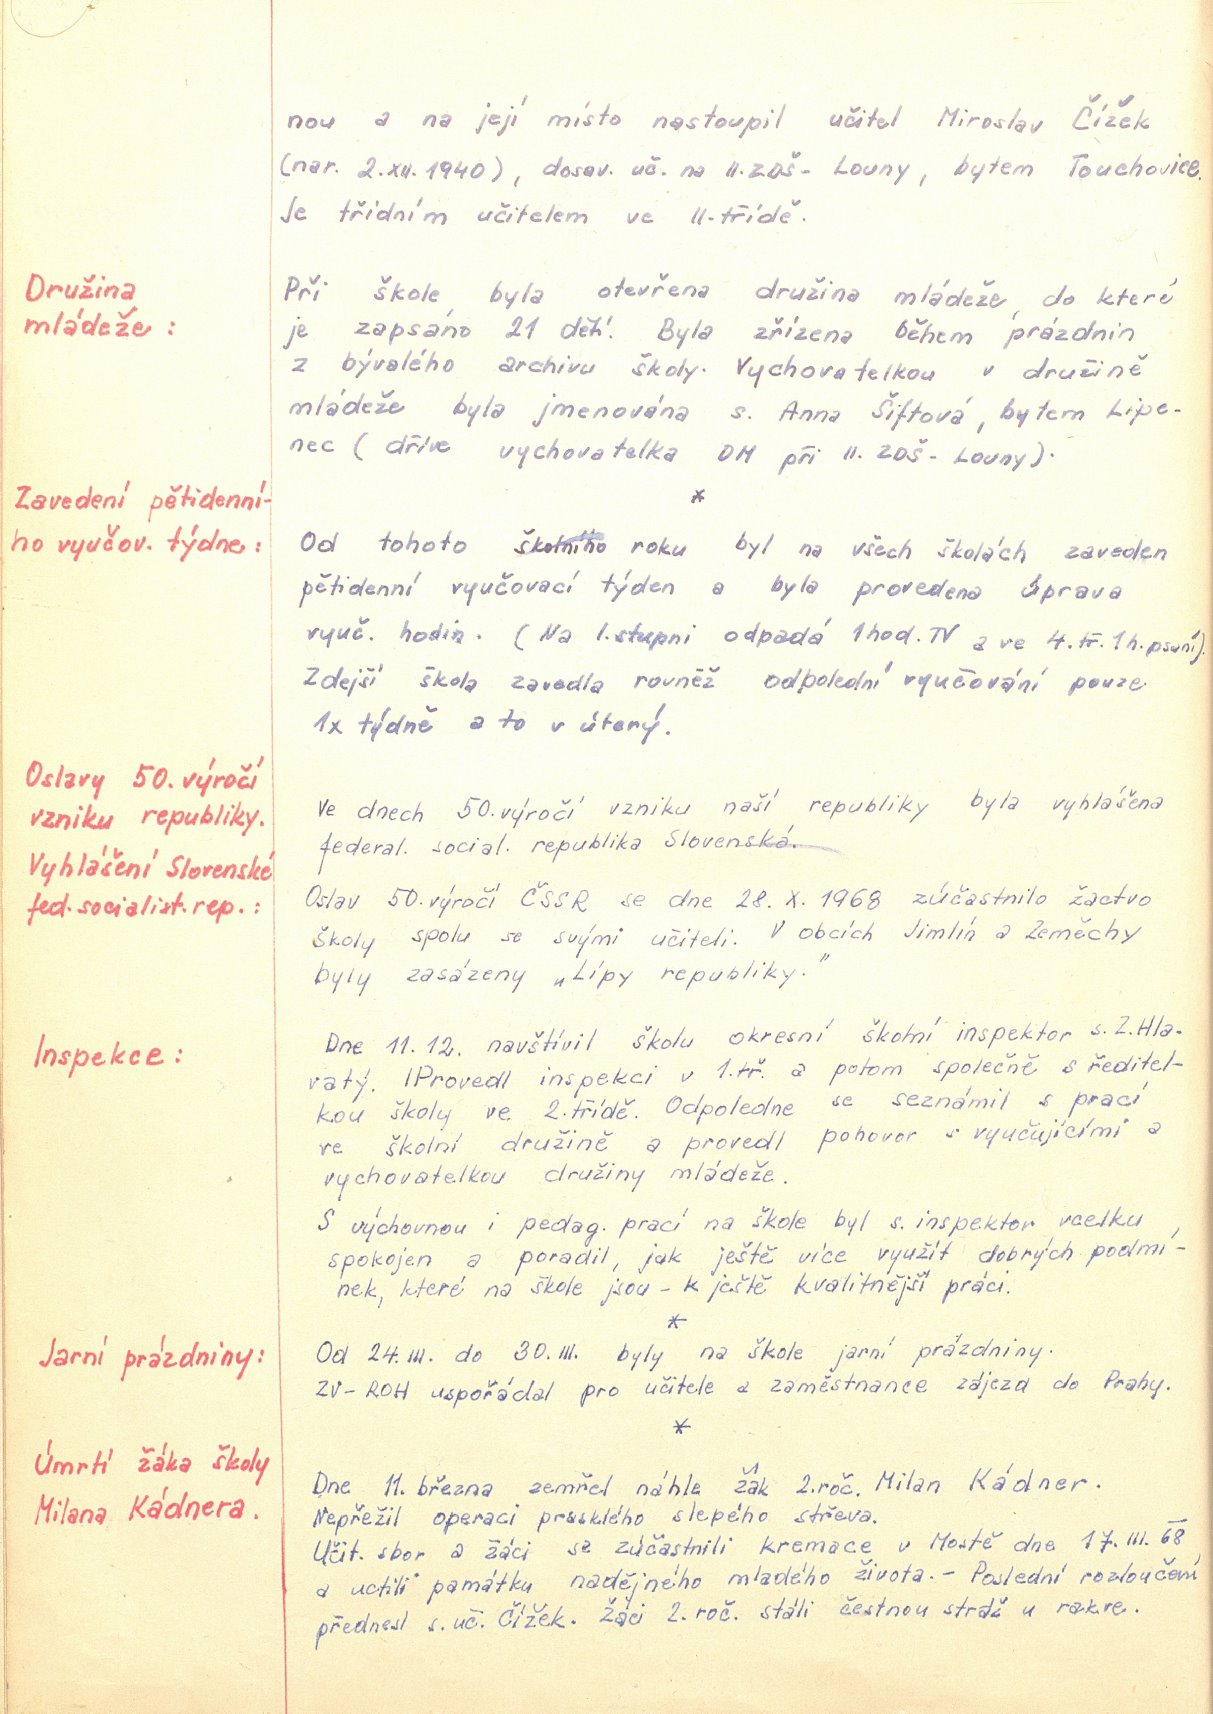 nou a na její místo nastoupil učitel Miroslav Čížek
(nar. 2.XII.1940), dosav. uč. na II.ZDŠ- Louny, bytem Touchovice.
Je třídním učitelem ve II.třídě.
Družina
mládeže :
Při škole byla otevřena družina mládeže, do které
je zapsáno 21 dětí. Byla zřízena během prázdnin
z bývalého archivu školy. Vychovatelkou v družině
mládeže byla jmenována s. Anna Šiftová, bytem Lipe-
nec ( dříve vychovatelka DM při II. ZDŠ - Louny).
*
Zavedení pětidenní-
ho vyučov. týdne :
Od tohoto školního roku byl na všech školách zaveden
pětidenní vyučovací týden a byla provedena úprava
vyuč. hodin. (Na I.stupni odpadá 1hod. TV a ve 4.tř. 1h.psaní).
Zdejší škola zavedla rovněž odpolední vyučování pouze
1x týdně a to v úterý.
Oslavy 50. výročí
vzniku republiky.
Vyhlášení Slovenské
fed. socialist. rep. :
Ve dnech 50.výročí vzniku naší republiky byla vyhlášena
federal. social. republika Slovenská.
Oslav 50.výročí ČSSR se dne 28. X. 1968 zúčastnilo žactvo
školy spolu se svými učiteli. V obcích Jimlín a Zeměchy
byly zasázeny „Lípy republiky."
Inspekce :
Dne 11.12. navštívil školu okresní školní inspektor s. Z. Hla-
vatý. Provedl inspekci v 1.tř. a potom společně s ředitel-
kou školy ve 2.třídě. Odpoledne se seznámil s prací
ve školní družině a provedl pohovor s vyučujícími a
vychovatelkou družiny mládeže.
S výchovnou i pedag. prací na škole byl s. inspektor vcelku
spokojen a poradil, jak ještě více využít dobrých podmí-
nek, které na škole jsou - k ještě kvalitnější práci.
*
Jarní prázdniny :
Od 24.III. do 30.III. byly na škole jarní prázdniny.
ZV - ROH uspořádal pro učitele a zaměstnance zájezd do Prahy.
*
Úmrtí žáka školy
Milana Kádnera.
Dne 11. března zemřel náhle žák 2.roč. Milan Kádner.
Nepřežil operaci prasklého slepého střeva.
Učit. sbor a žáci se zúčastnili kremace v Mostě dne 17. III. 68
a uctili památku nadějného mladého života. - Poslední rozloučení
přednesl s. uč. Čížek. Žáci 2. roč. stáli čestnou stráž u rakve.